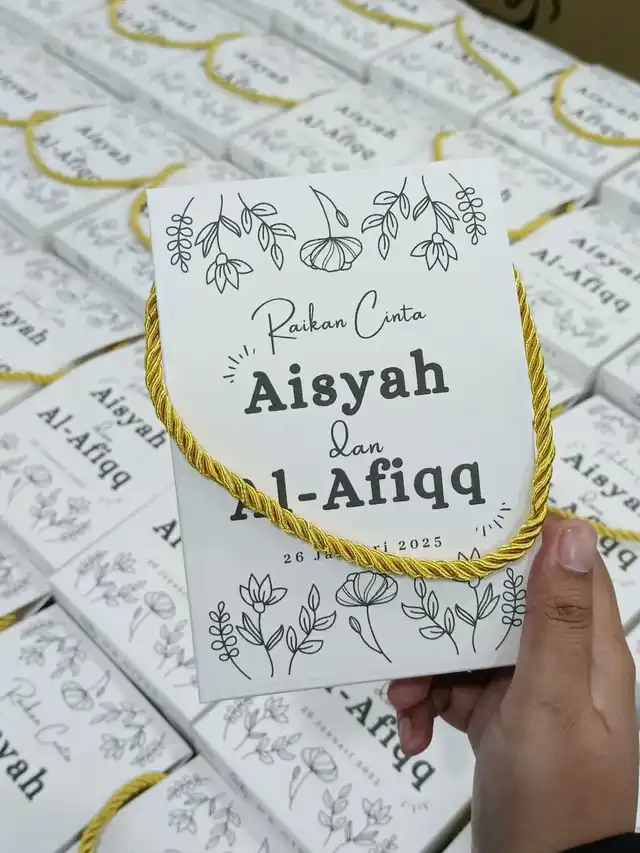 Raikan Cinta
Aisyah
dan
Al-Afiqq
26 Januari 2025